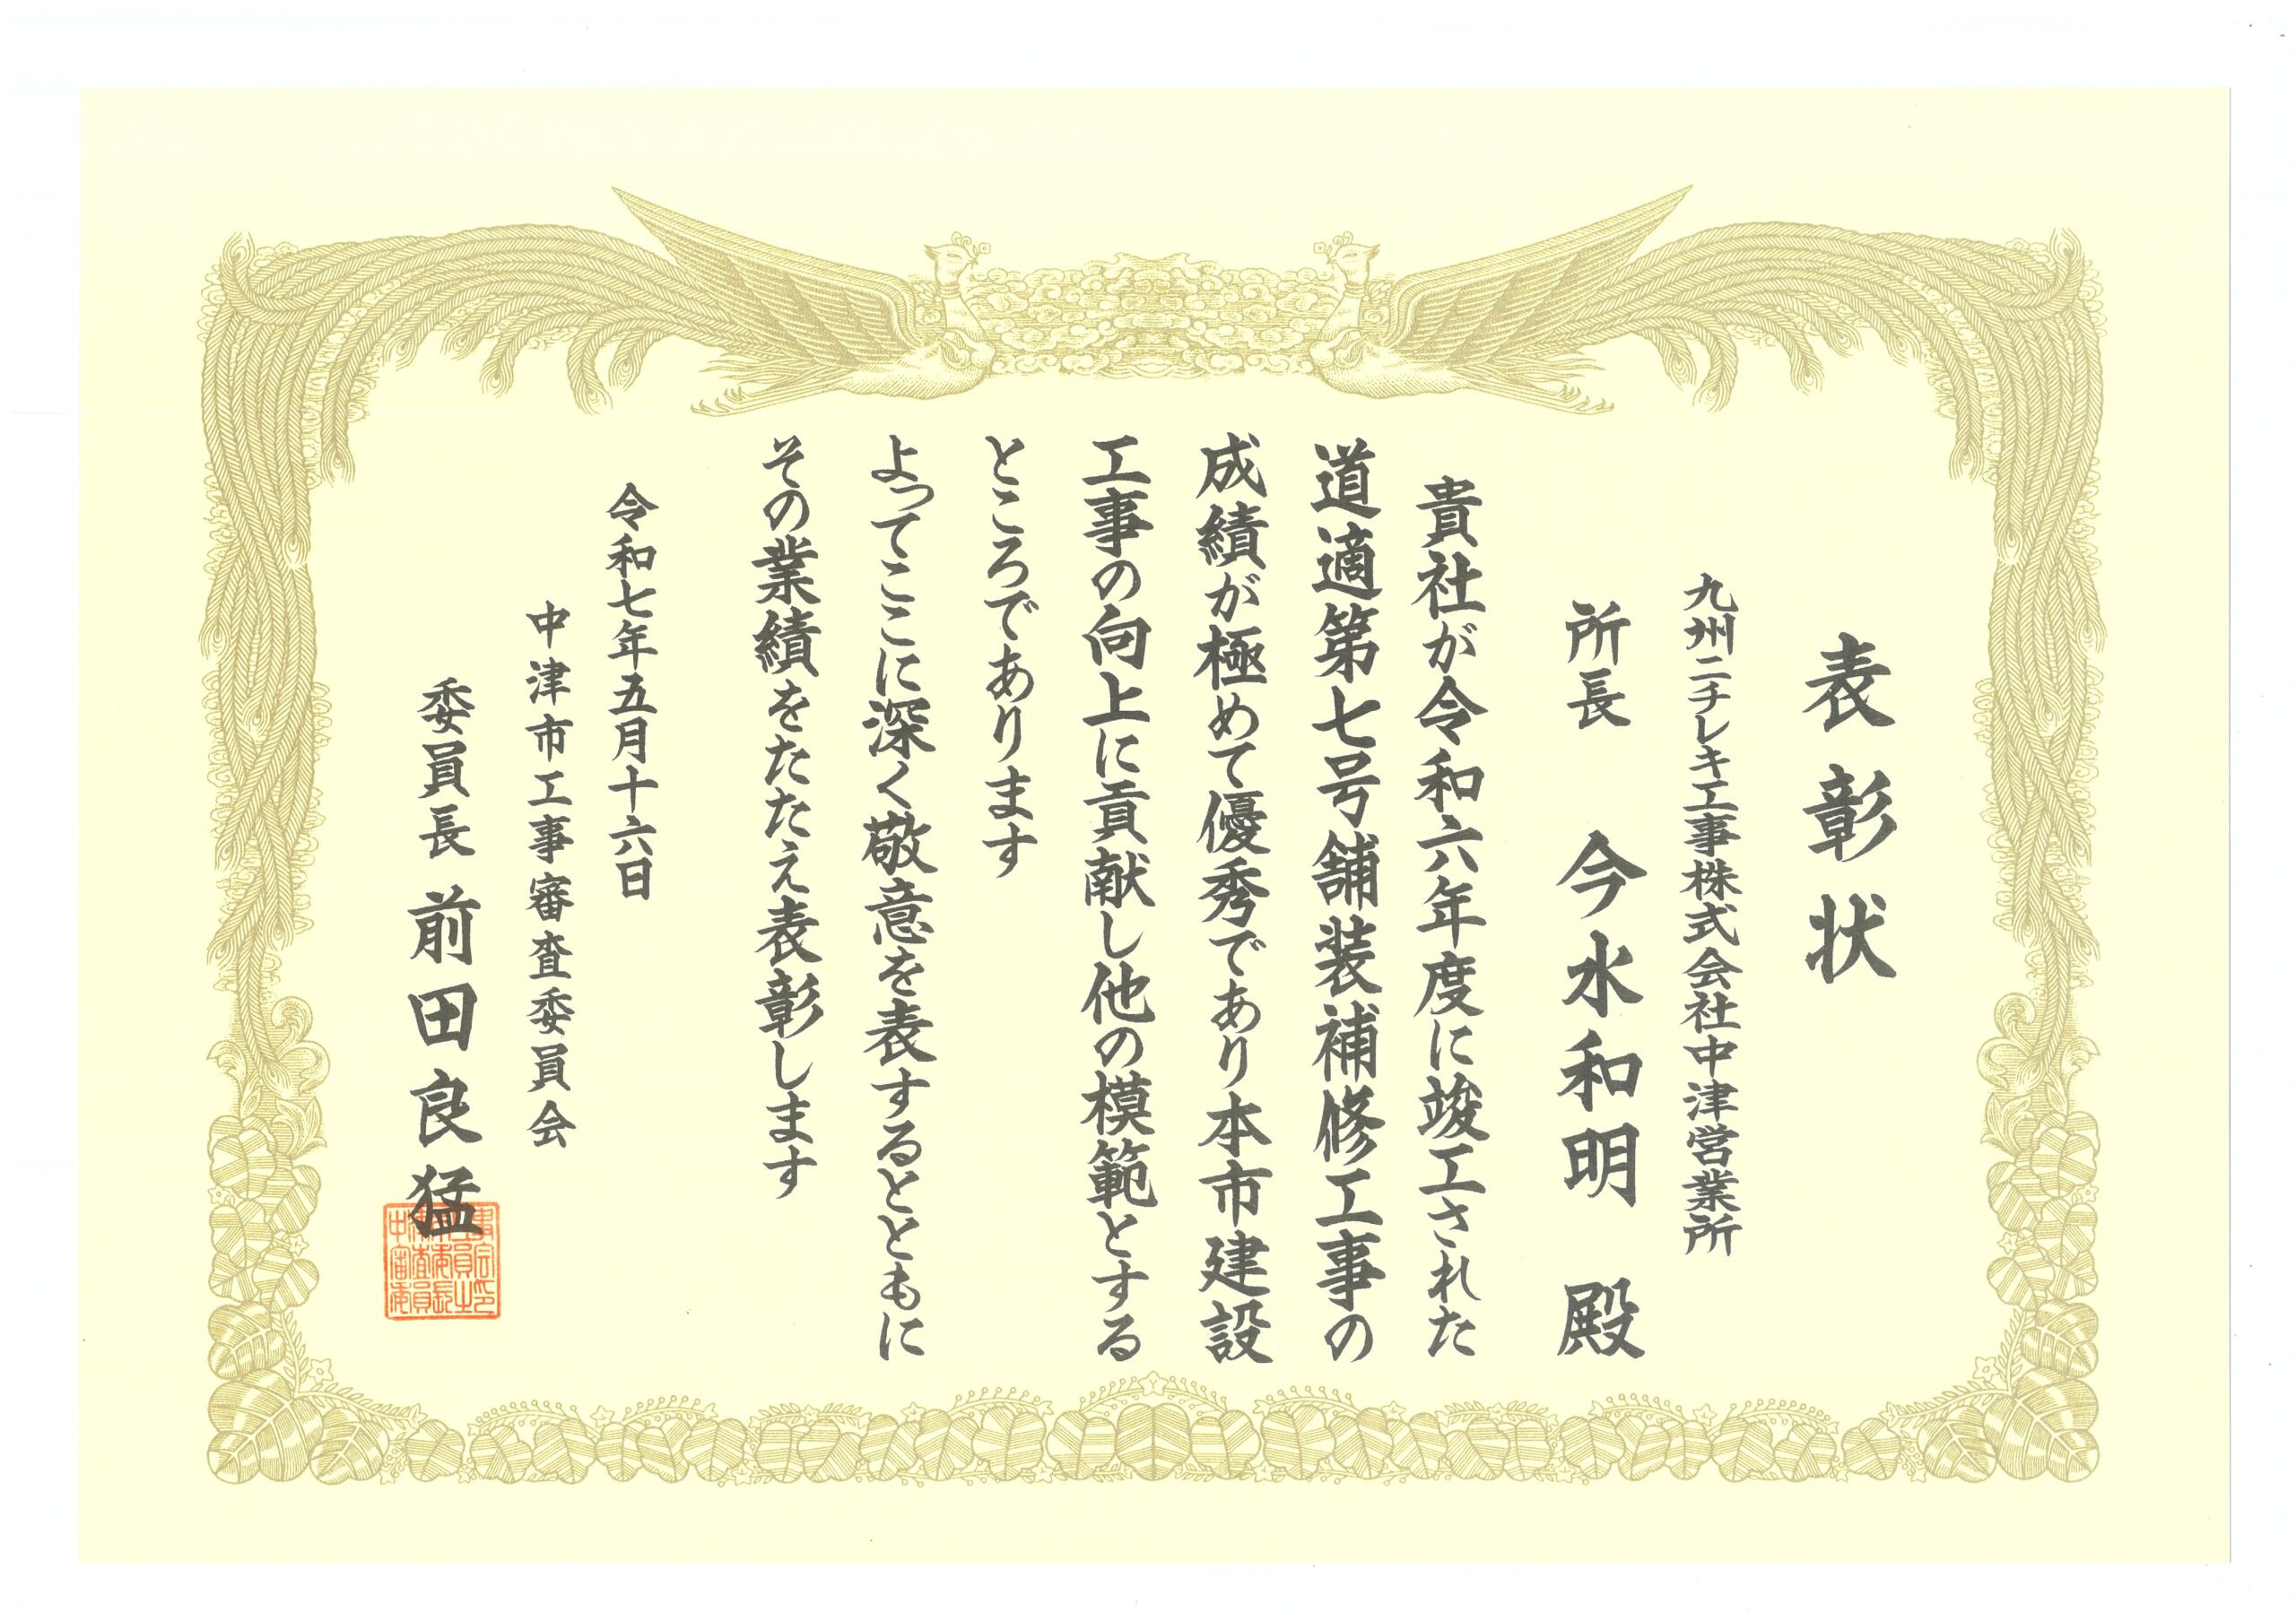 表彰状
九州ニチレキ工事株式会社中津営業所
所長 今水和明 殿
貴社が令和六年度に竣工された
道適第七号舗装補修工事の
成績が極めて優秀であり本市建設
工事の向上に貢献し他の模範とする
ところであります
よってここに深く敬意を表するとともに
その業績をたたえ表彰します
令和七年五月十六日
中津市工事審査委員会
委員長 前田良猛